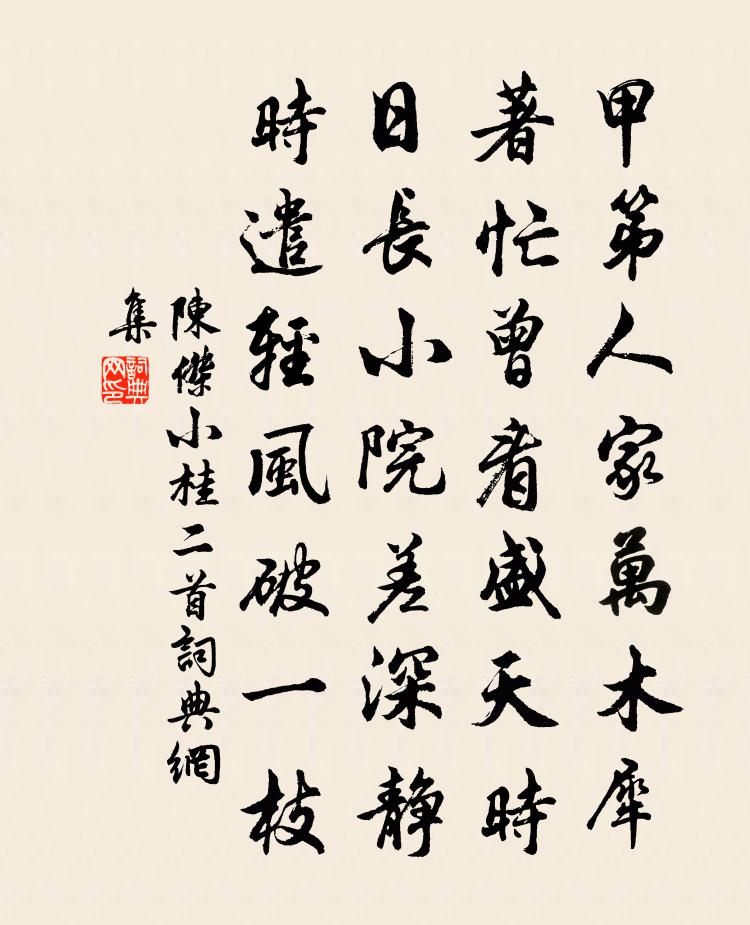 甲第人家萬木犀
著忙曾看盛天時
日長小院差深靜
時遣輕風破一枝
陳傑小桂二首詞典網
集
詞典
网印